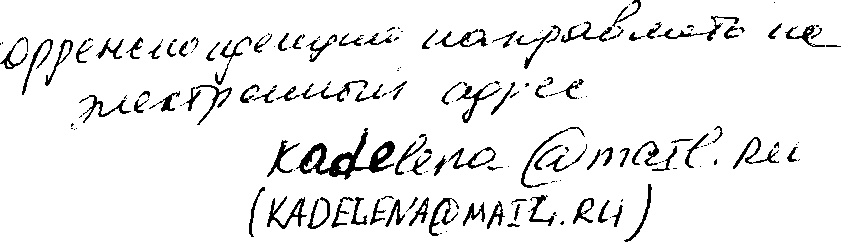 орреспонденцию направлять на
электронный адрес
kadelena@mail.ru
(KADELENA@MAIL.RU)